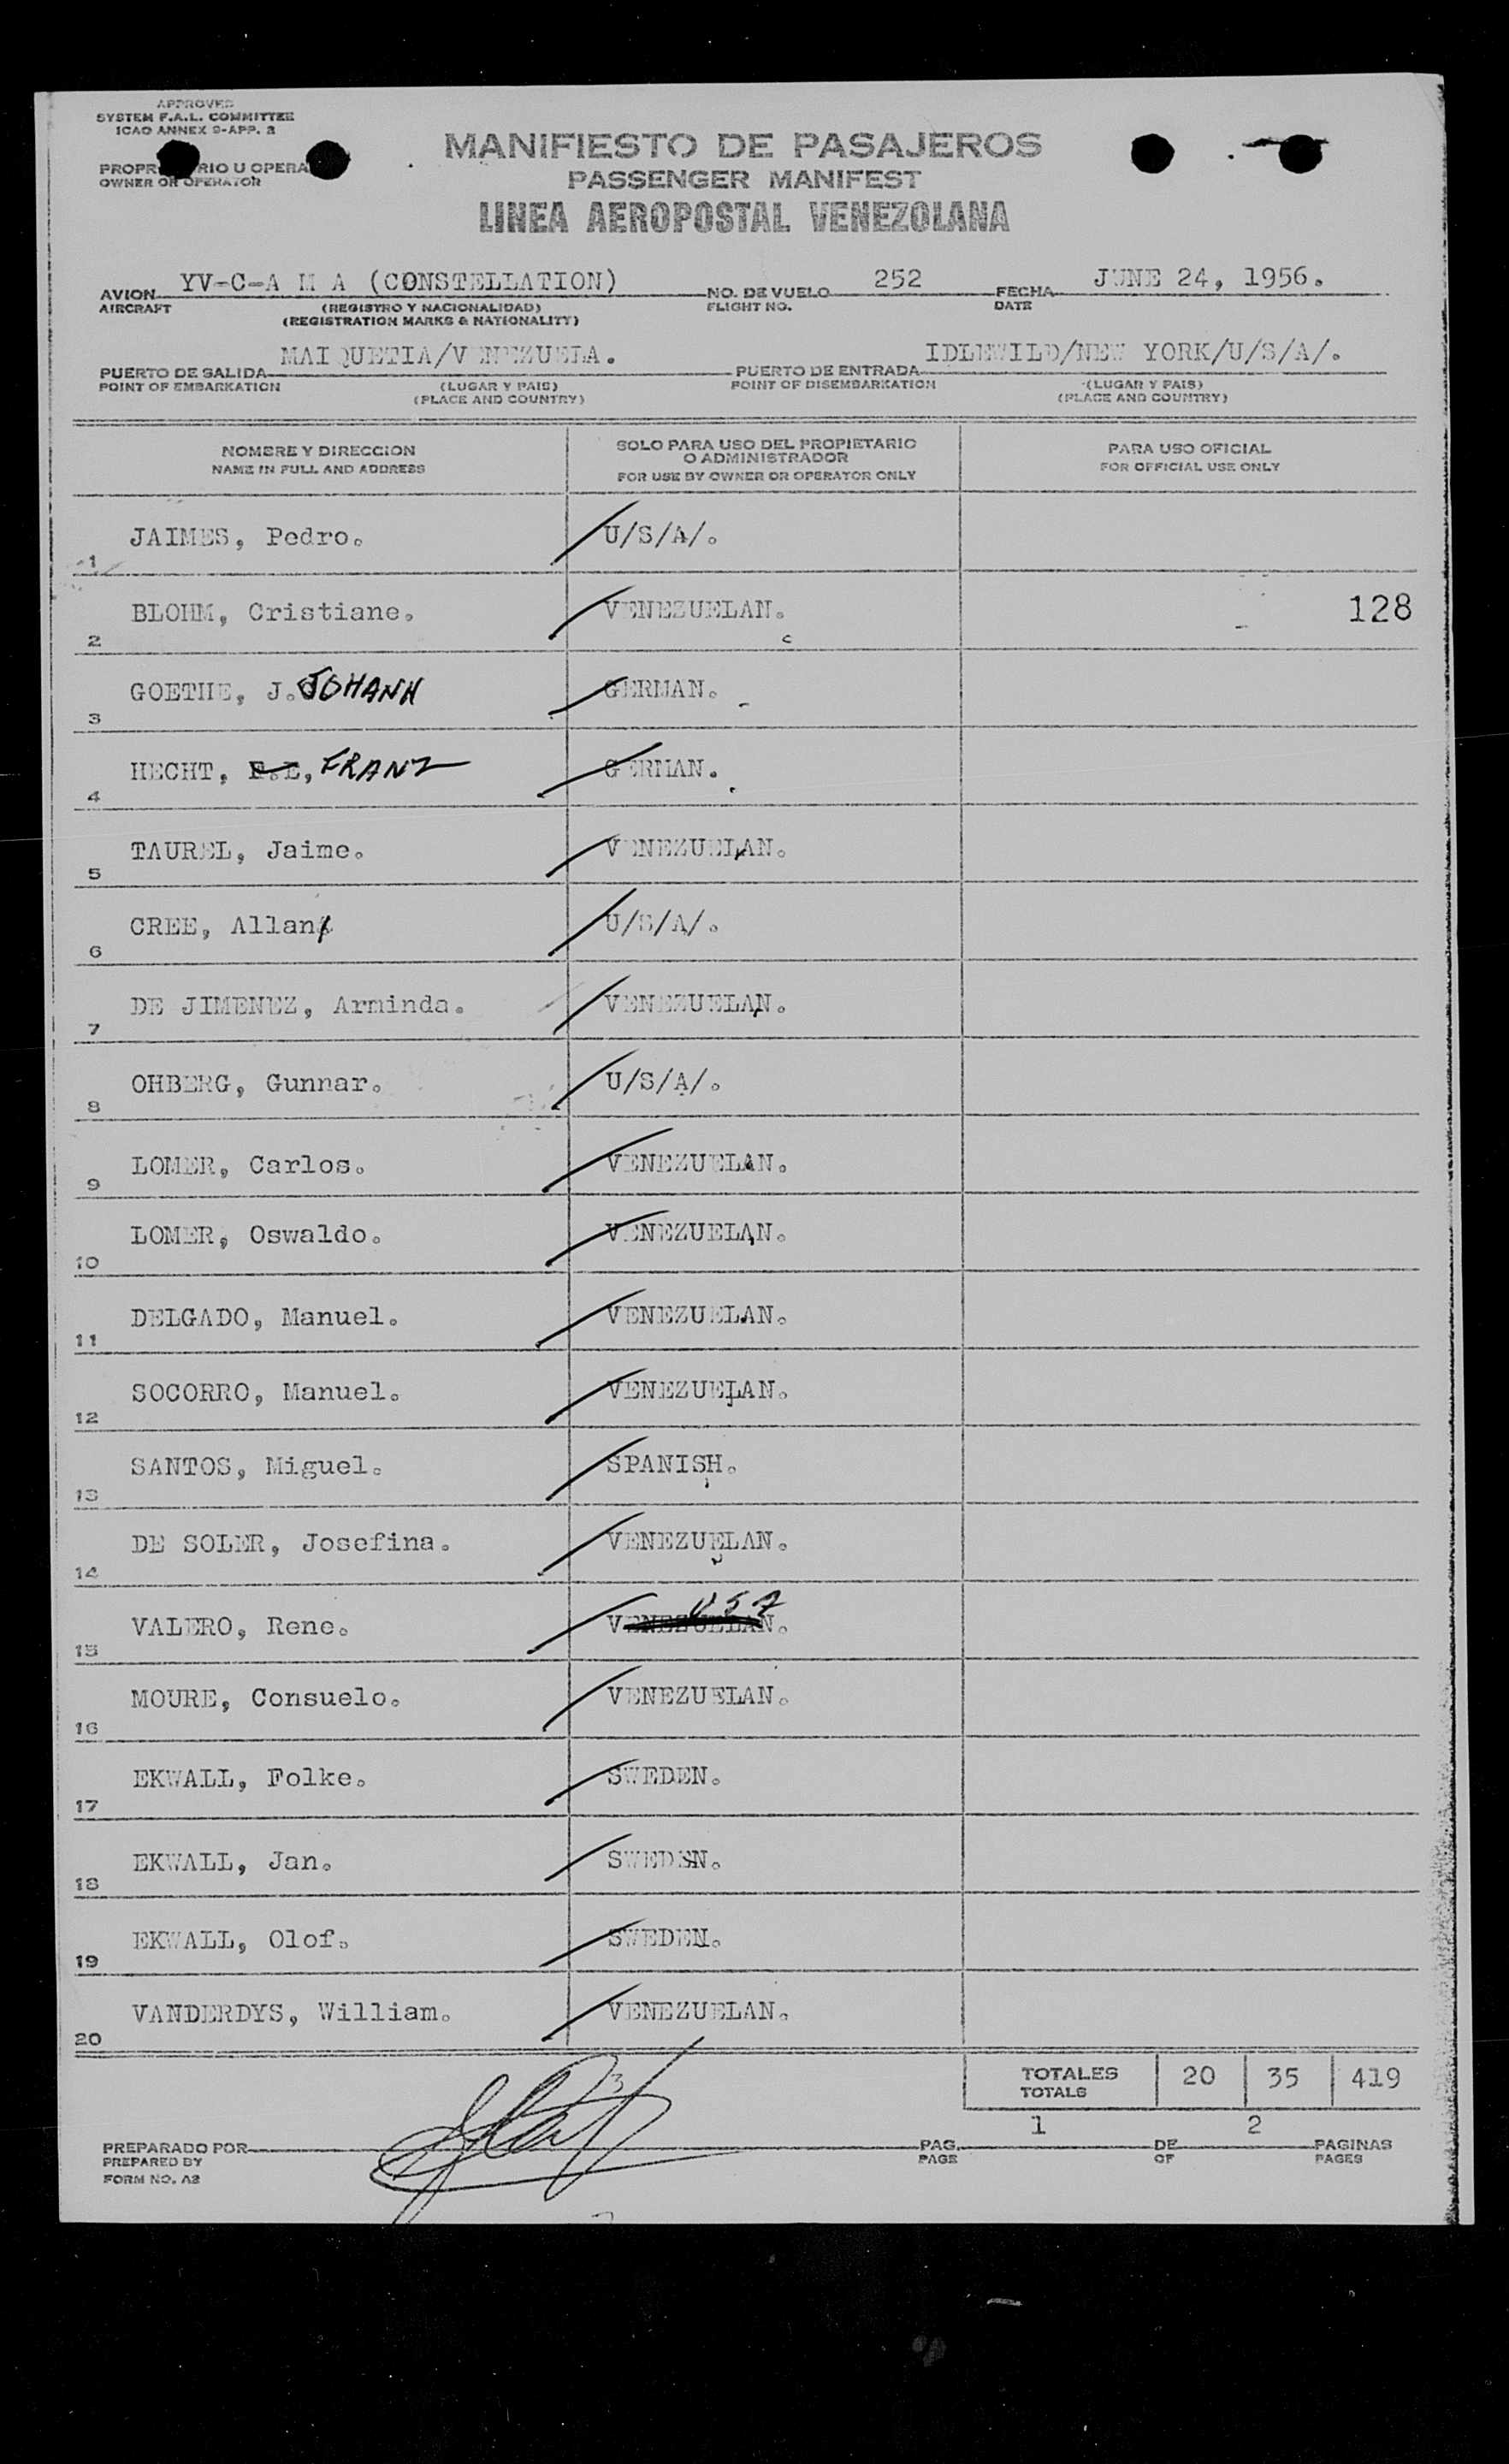 APPROVED
SYSTEM F.A.L. COMMITTEE
ICAO ANNEX 9-APP. 2
OWNER OR OPERATOR
MANIFIESTO DE PASAJEROS
PASSENGER MANIFEST
LINEA AEROPOSTAL VENEZOLANA
AVION YV-C-A M A (CONSTELLATION) NO. DE VUELO 252 FECHA JUNE 24, 1956.
AIRCRAFT (REGISTRO Y NACIONALIDAD) FLIGHT NO. DATE
(REGISTRATION MARKS & NATIONALITY)
PUERTO DE SALIDA MAIQUETIA/VENEZUELA. PUERTO DE ENTRADA IDLEWILD/NEW YORK/U/S/A/.
POINT OF EMBARKATION (LUGAR Y PAIS) POINT OF DISEMBARKATION (LUGAR Y PAIS)
(PLACE AND COUNTRY) (PLACE AND COUNTRY)
NOMBRE Y DIRECCION SOLO PARA USO DEL PROPIETARIO O ADMINISTRADOR PARA USO OFICIAL
NAME IN FULL AND ADDRESS FOR USE BY OWNER OR OPERATOR ONLY FOR OFFICIAL USE ONLY
1 JAIMES, Pedro. U/S/A/.
2 BLOHM, Cristiane. VENEZUELAN. 128
3 GOETHE, J. JOHANN GERMAN.
4 HECHT, FRANZ GERMAN.
5 TAUREL, Jaime. VENEZUELAN.
6 CREE, Allan U/S/A/.
7 DE JIMENEZ, Arminda. VENEZUELAN.
8 OHBERG, Gunnar. U/S/A/.
9 LOMER, Carlos. VENEZUELAN.
10 LOMER, Oswaldo. VENEZUELAN.
11 DELGADO, Manuel. VENEZUELAN.
12 SOCORRO, Manuel. VENEZUELAN.
13 SANTOS, Miguel. SPANISH.
14 DE SOLER, Josefina. VENEZUELAN.
15 VALERO, Rene. VENEZUELAN. USA
16 MOURE, Consuelo. VENEZUELAN.
17 EKWALL, Folke. SWEDEN.
18 EKWALL, Jan. SWEDEN.
19 EKWALL, Olof. SWEDEN.
20 VANDERDYS, William. VENEZUELAN.
TOTALES 20 35 419
TOTALS
PREPARADO POR PAG. 1 DE 2 PAGINAS
PREPARED BY PAGE OF PAGES
FORM NO. A2